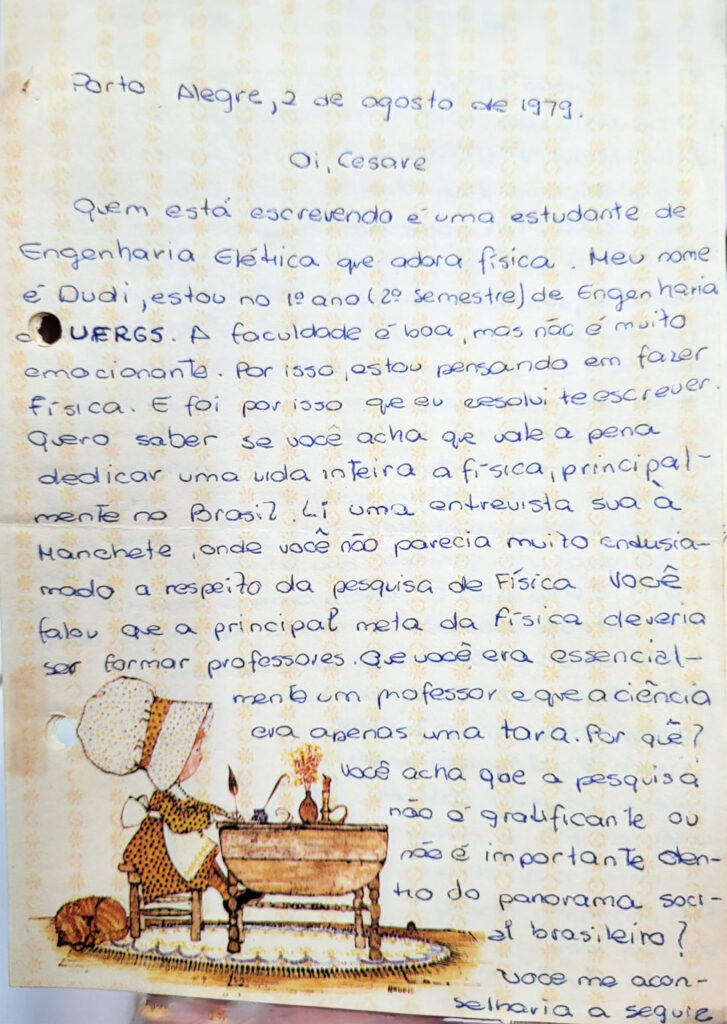 Porto Alegre, 2 de agosto de 1979.
Oi, Cesare
Quem está escrevendo é uma estudante de
Engenharia Elétrica que adora física. Meu nome
é Dudi, estou no 1º ano (2º semestre) de Engenharia
UFRGS. A faculdade é boa, mas não é muito
emocionante. Por isso, estou pensando em fazer
física. E foi por isso que eu resolvi te escrever.
Quero saber se você acha que vale a pena
dedicar uma vida inteira a física, principal-
mente no Brasil. Li uma entrevista sua à
Manchete, onde você não parecia muito endusia-
mado a respeito da pesquisa de Física. Você
falou que a principal meta da física deveria
ser formar professores. Que você era essencial-
mente um professor e que a ciência
era apenas uma tara. Por quê?
Você acha que a pesquisa
não é gratificante ou
não é importante den-
tro do panorama soci-
al brasileiro?
Voce me acon-
selharia a seguir